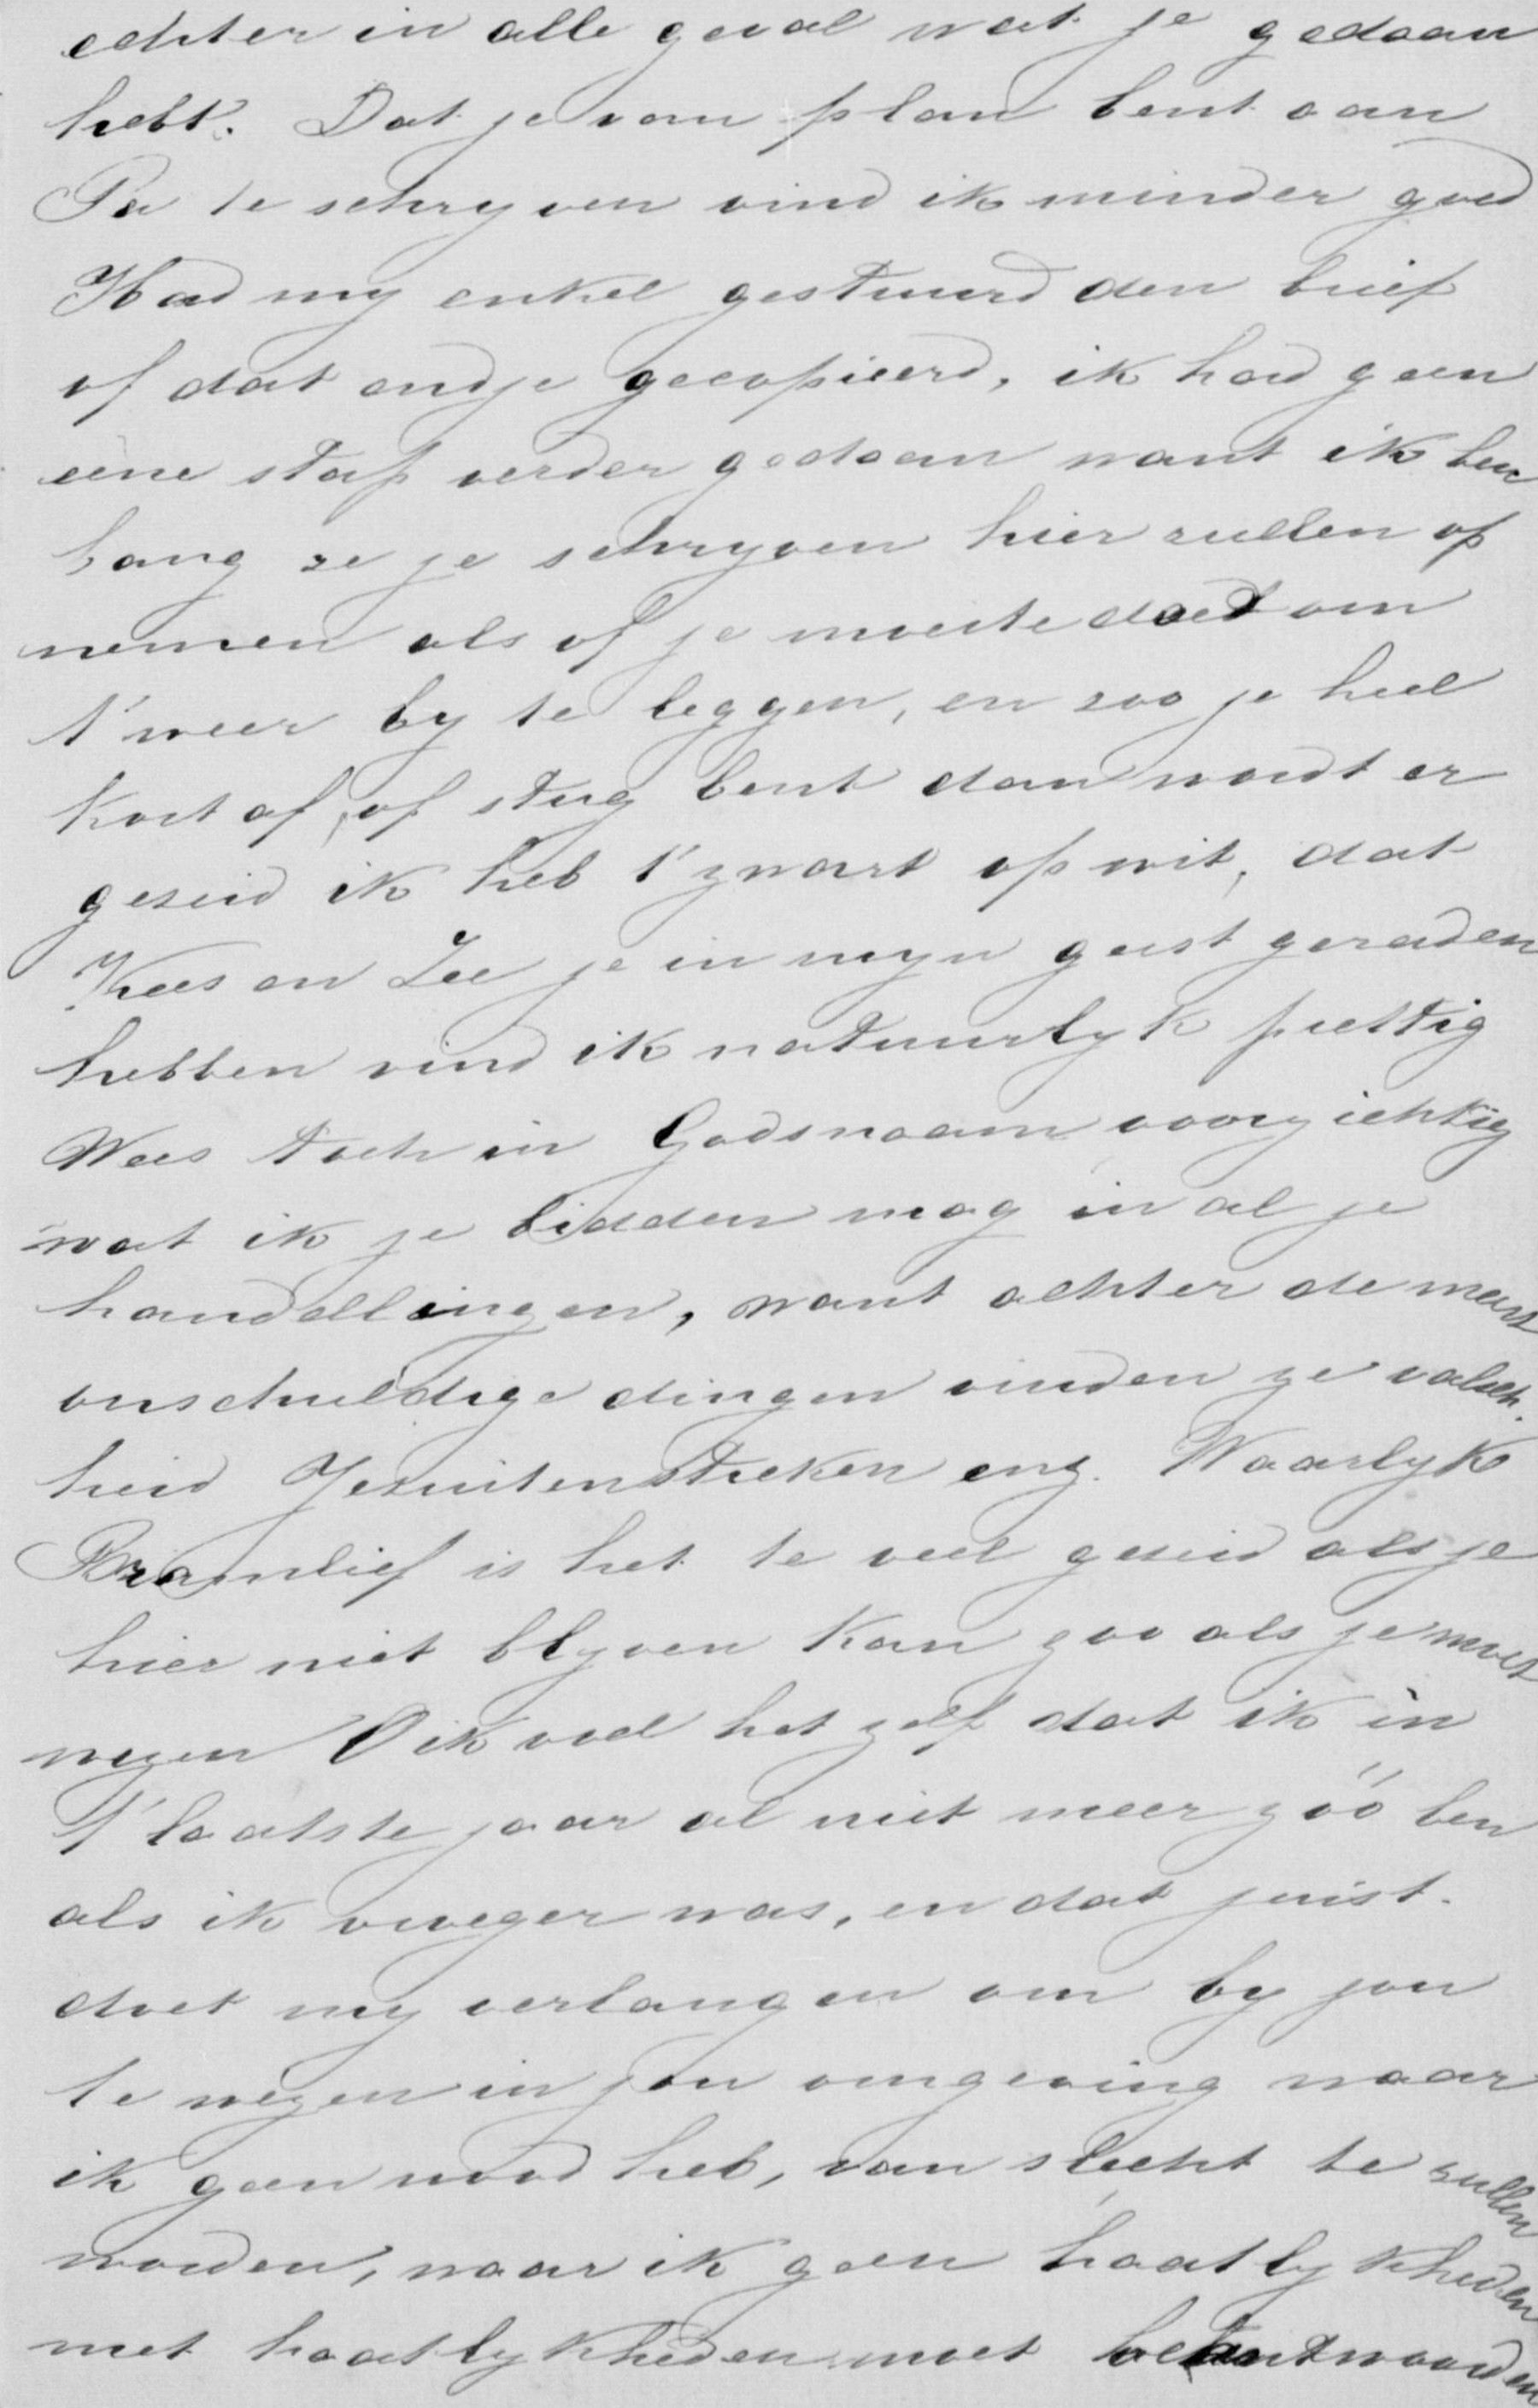 echter in alle geval wat je gedaan
hebt. Dat je van plan bent aan
Pa te schryven vind ik minder goed
Had my enkel gestuurd den brief
of dat endje gecopieerd, ik had geen
eene stap verder gedaan want ik ben
bang ze je schryven hier zullen op
nemen als of je moeite doed om
t' weer by te leggen, en zoo je heel
kort af, of stug bent dan wordt er
gezeid ik heb t' zwart op wit, dat
Kees en Zee je in myn geest geraden
hebben vind ik natuurlyk prettig
Wees toch in Godsnaam voorzichtig
wat ik je bidden mag in al je
handellingen, want achter de meest
onschuldige dingen vinden ze valsch.
heid Jezuitenstreken enz. Waarlyk
Bramlief is het te veel gezeid als je
hier niet blyven kan zoo als je moet
wezen O ik voel het zelf dat ik in
t' laatste jaar al niet meer zóó ben
als ik vroeger was, en dat juist.
doet my verlangen om by jou
te wezen in jou omgeving waar
ik geen nood heb, van slecht te zullen
worden, waar ik geen haatlykheden
met haatlykheden moet beantwoorden